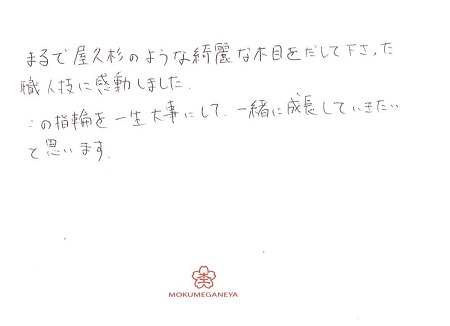 まるで屋久杉のような綺麗な木目をだして下さった
職人技に感動しました。
この指輪を一生大事にして、一緒に成長していきたい
と思います。
MOKUMEGANEYA